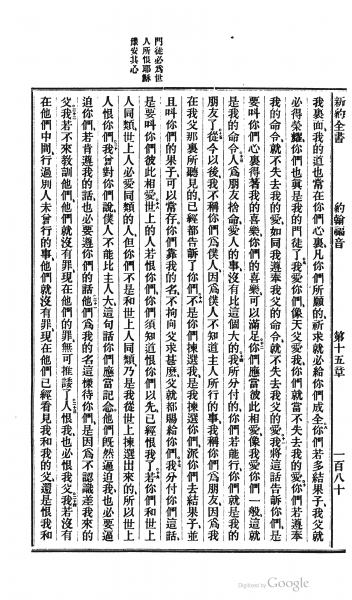 新約全書 約翰福音 第十五章 一百八十
我裏面我的道也當在你們心裏凡你們所願的祈求就必給你們成全你們若多結果子我父就
必得榮耀你們也眞是我的門徒了我愛你們像天父愛我你們就當不失去我的愛你們若遵奉
我的命令就不失去我的愛如同我遵奉我父的命令就不失去我父的愛我將這話告訴你們是
要叫你們心裏得著我的喜樂你們的喜樂可以滿足你們應當彼此相愛像我愛你們一般這就
是我的命令人爲朋友捨命愛人的事沒有比這個大的我所分付的你們若能行你們就是我的
朋友了從今以後我不稱你們爲僕人因爲僕人不知道主人所行的事我稱你們爲朋友因爲我
在我父那裏所聽見的已經都告訴了你們不是你們揀選我是我揀選你們派你們去結果子並
且叫你們的果子可以常存你們靠我的名不拘向父求甚麽父就都賜給你們我分付你們這話
是要叫你們彼此相愛世上的人若恨你們你們須知道恨你們以先已經恨我了若你們和世上
人同類世上人必愛同類的人但你們不是和世上人同類乃是我從世上揀選出來的所以世上
人恨你們我曾對你們說僕人不能比主人大這句話你們應當記念他們旣然逼迫我也必要逼
迫你們若肯遵我的話也必要遵你們的話他們爲我的名這樣待你們是因爲不認識差我來的
父我若不來教訓他們他們就沒有罪現在他們的罪無可推諉了人恨我也必恨我父我若沒有
在他們中間行過別人未曾行的事他們就沒有罪現在他們已經看見我和我的父還是恨我和
門徒必爲世
人所恨耶穌
豫安其心
Digitized by Google